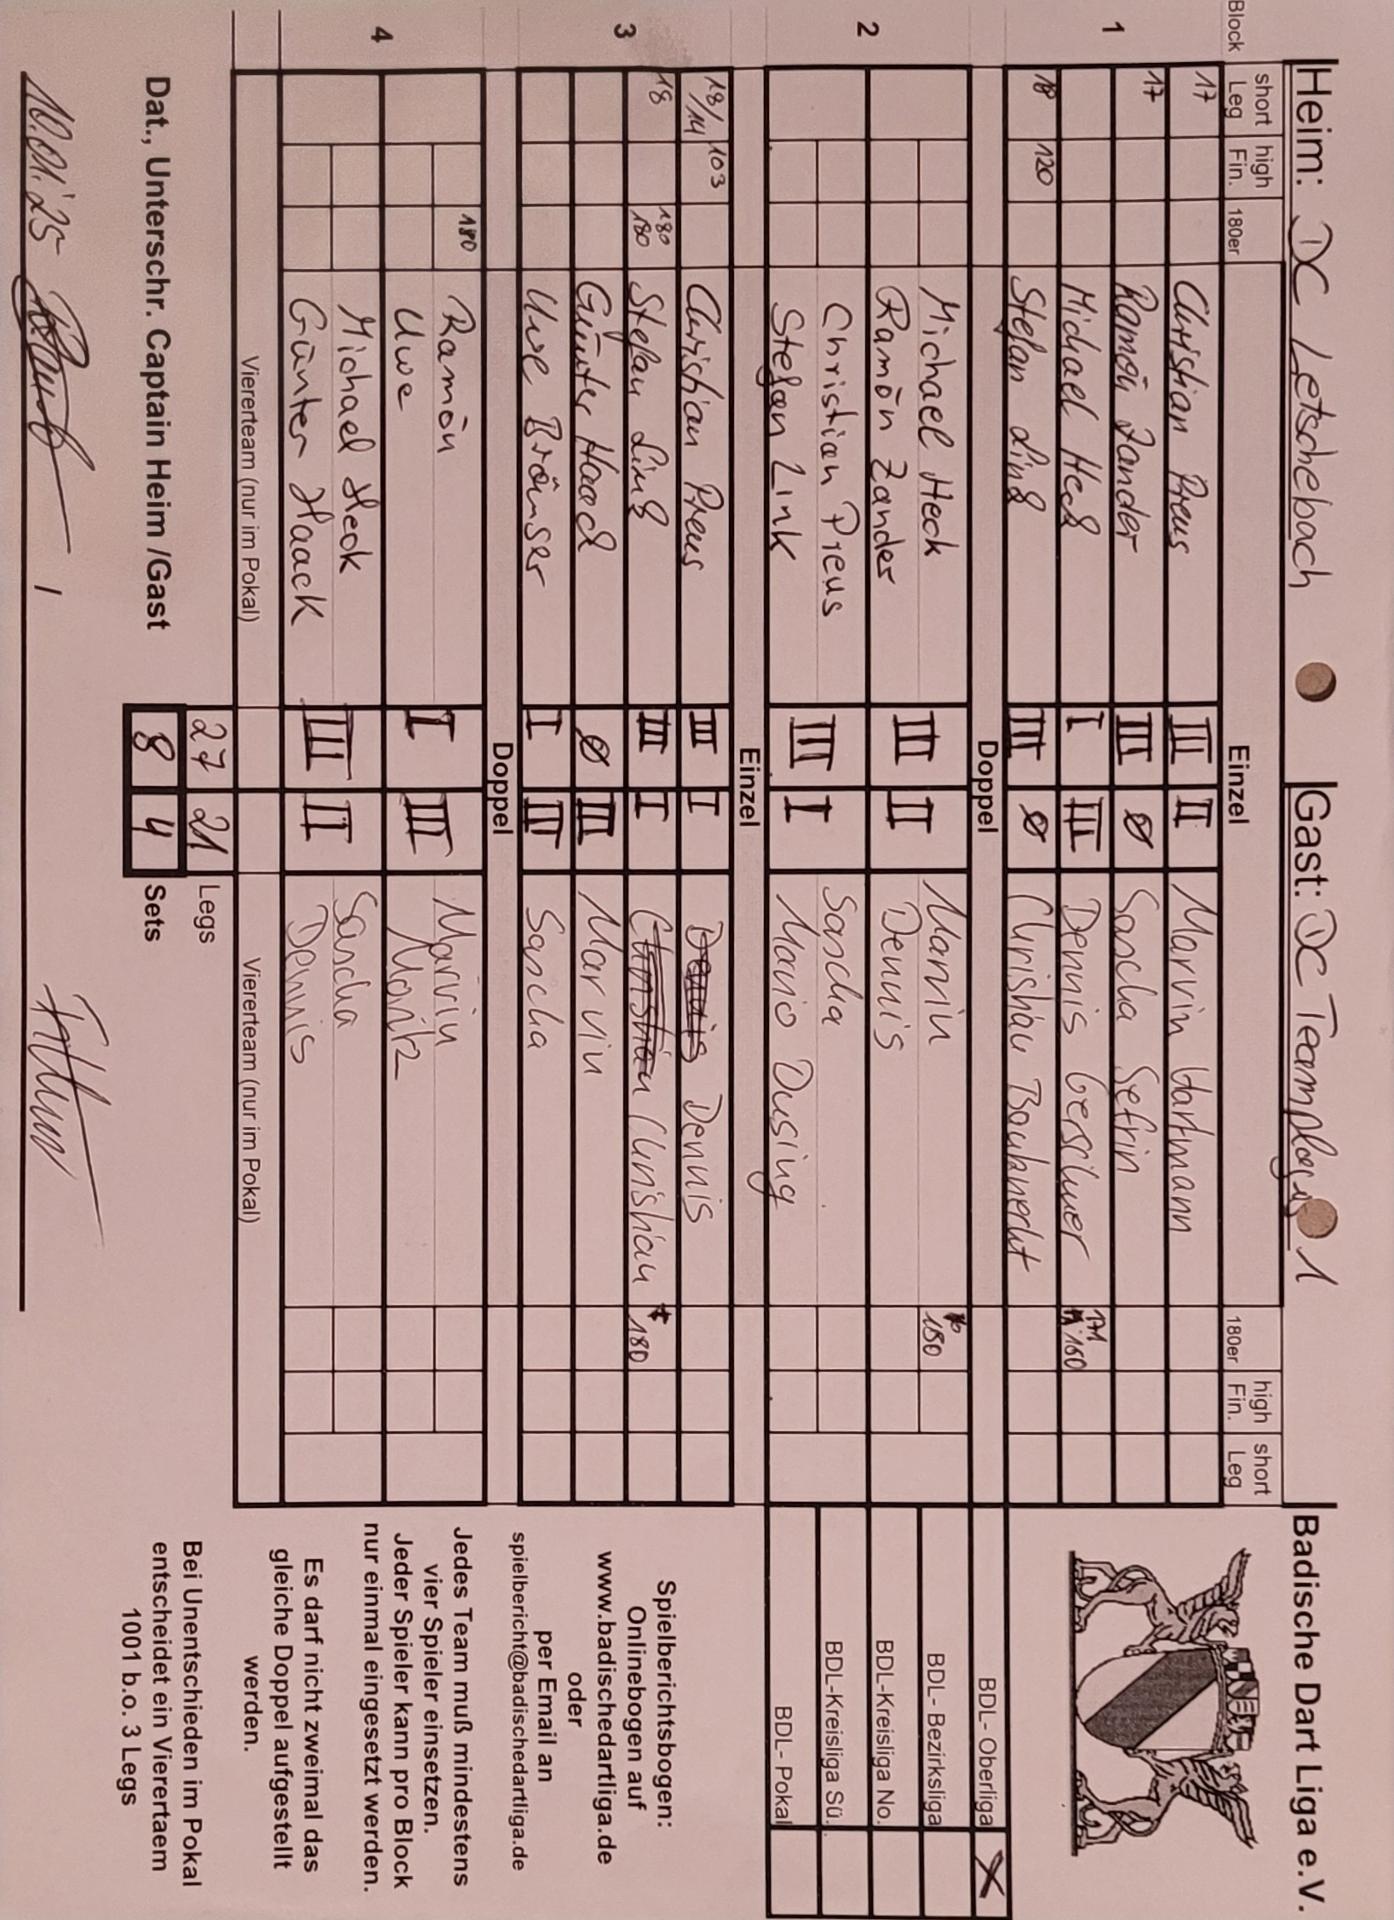 Heim: DC Letschebach Gast: DC Teamplayers 1 Badische Dart Liga e.V.
Block short Leg high Fin. 180er Einzel 180er high Fin. short Leg
1
17 Christian Preus III II Marvin Hartmann
17 Ramón Zander III Ø Sascha Sefrin
Michael Heck I III Dennis Gerschner 171
18 120 Stefan Link III Ø Christian Bauknecht
Doppel
BDL- Oberliga X
2
Michael Heck Marvin 180
Ramón Zander III II Dennis
Christian Preus Sascha
Stefan Link III I Mario Dusing
BDL- Bezirksliga
BDL-Kreisliga No.
BDL-Kreisliga Sü.
BDL- Pokal
Einzel
3
18/14 103 Christian Preus III I Dennis Dennis
18 180 180 Stefan Link III I Christian Christian 180
Günter Haack Ø III Marvin
Uwe Bräunser I III Sascha
Doppel
4
180 Ramón Marvin
Uwe I III Moritz
Michael Heck Sascha
Günter Haack III II Dennis
Viererteam (nur im Pokal) Viererteam (nur im Pokal)
27 21 Legs
8 4 Sets
Dat., Unterschr. Captain Heim /Gast
10.01.'25 /
Spielberichtsbogen:
Onlinebogen auf
www.badischedartliga.de
oder
per Email an
spielbericht@badischedartliga.de
Jedes Team muß mindestens
vier Spieler einsetzen.
Jeder Spieler kann pro Block
nur einmal eingesetzt werden.
Es darf nicht zweimal das
gleiche Doppel aufgestellt
werden.
Bei Unentschieden im Pokal
entscheidet ein Vierertaem
1001 b.o. 3 Legs